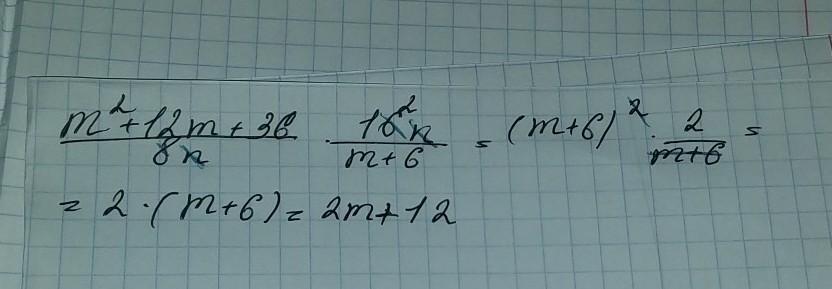 (m²+12m+36)/(8n) · (16²n)/(m+6) = (m+6)² · 2/(m+6) =
= 2·(m+6) = 2m+12